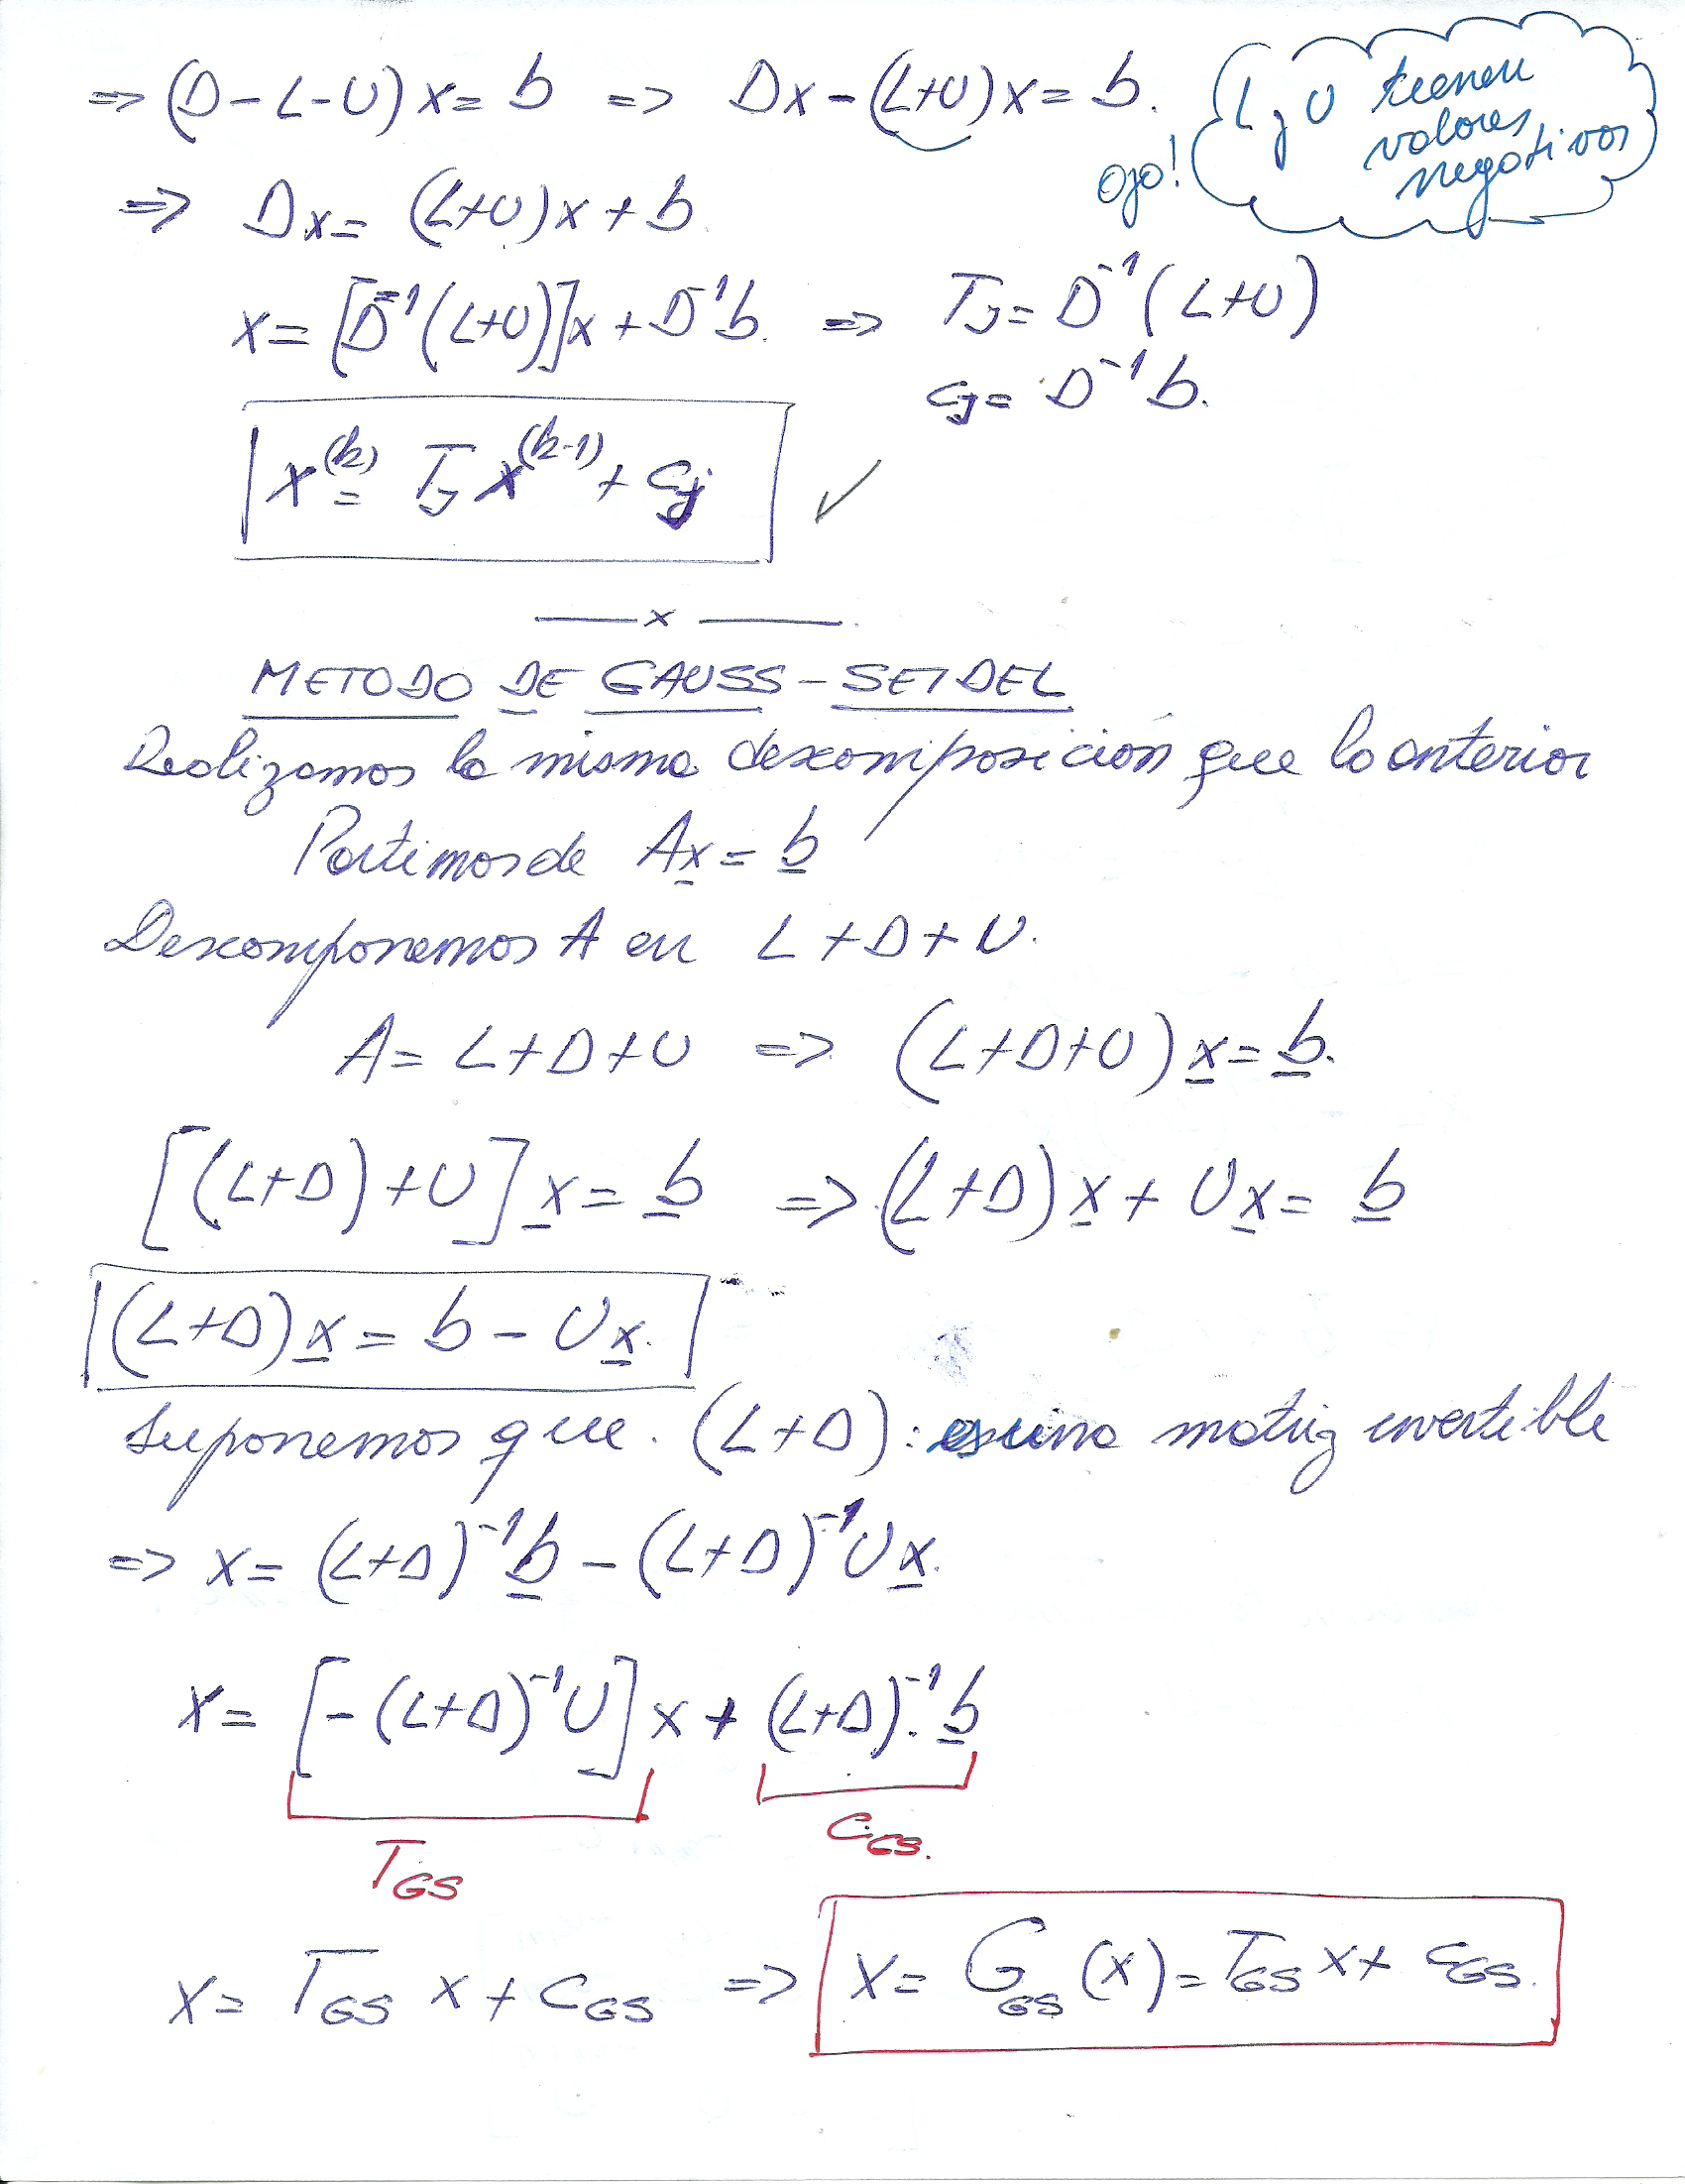 => (D-L-U)x = b => Dx-(L+U)x = b.
Ojo! L y U tienen
valores
negativos
=> Dx = (L+U)x + b
x = [D⁻¹(L+U)]x + D⁻¹b. => Tj = D⁻¹(L+U)
cj = D⁻¹b.
x^(k) = Tj x^(k-1) + cj ✓
—— x ——
METODO DE GAUSS-SEIDEL
Realizamos la misma descomposición que lo anterior
Partimos de Ax = b
Descomponemos A en L+D+U.
A = L+D+U => (L+D+U)x = b.
[(L+D)+U]x = b => (L+D)x + Ux = b
(L+D)x = b - Ux.
Suponemos que. (L+D): es una matriz invertible
=> x = (L+D)⁻¹b - (L+D)⁻¹Ux.
x = [-(L+D)⁻¹U]x + (L+D)⁻¹.b
T_GS c_GS.
x = T_GS x + c_GS => x = G_GS(x) = T_GS x + c_GS.